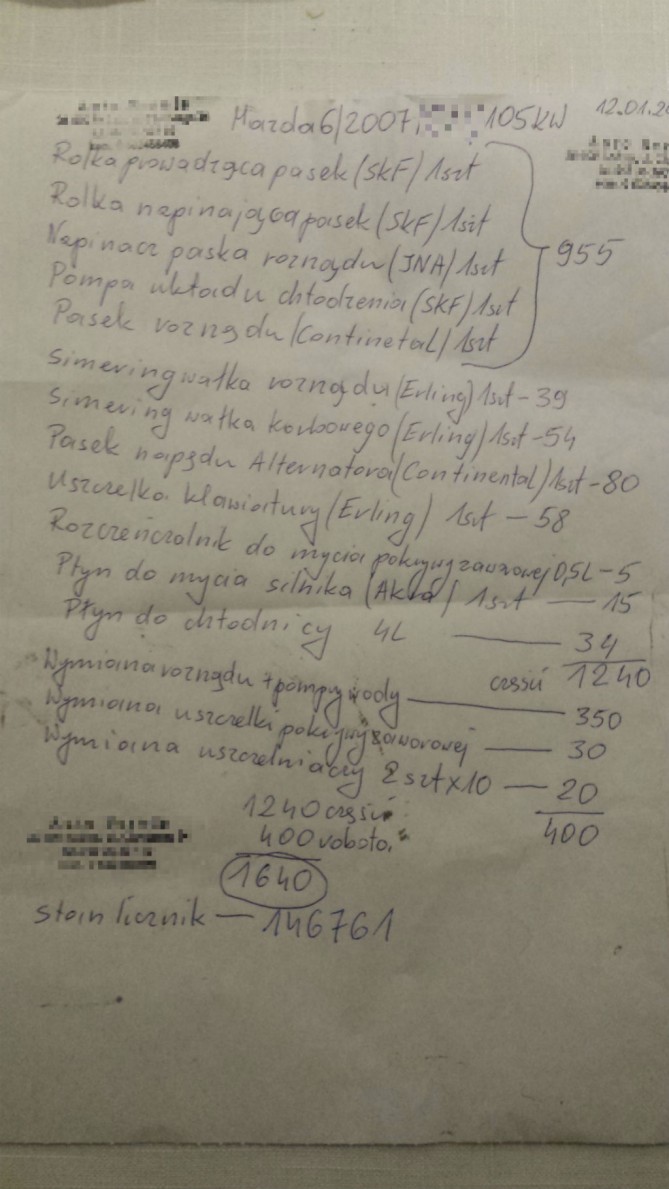 Mazda 6/2007, 105KW 12.01.20
Rolka prowadząca pasek (SKF) 1szt
Rolka napinająca pasek (SKF) 1szt
Napinacz paska rozrządu (JNA) 1szt
955
Pompa układu chłodzenia (SKF) 1szt
Pasek rozrządu (Continetal) 1szt
Simering wałka rozrządu (Erling) 1szt - 39
Simering wałka korbowego (Erling) 1szt - 54
Pasek napędu Alternatora (Continental) 1szt - 80
Uszczelka klawiatury (Erling) 1szt - 58
Rozczeńczalnik do mycia pokrywy zaworowej 0,5L - 5
Płyn do mycia silnika (Akra) 1szt - 15
Płyn do chłodnicy 4L - 34
części 1240
Wymiana rozrządu + pompy wody - 350
Wymiana uszczelki pokrywy zaworowej - 30
Wymiana uszczelniaczy 2szt x 10 - 20
400
1240 części
400 robota
1640
stan licznik - 146761